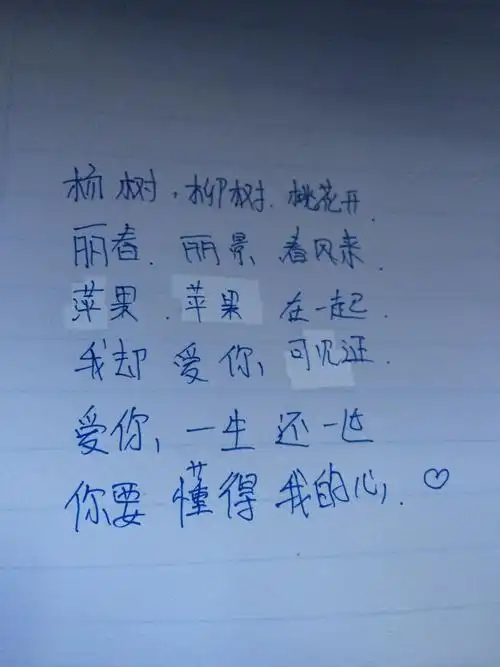 杨树,柳树.桃花开.
丽春.丽景 春风来.
苹果.苹果 在一起.
我却 爱你,可见证.
爱你,一生还一世
你要 懂得 我的心.♡